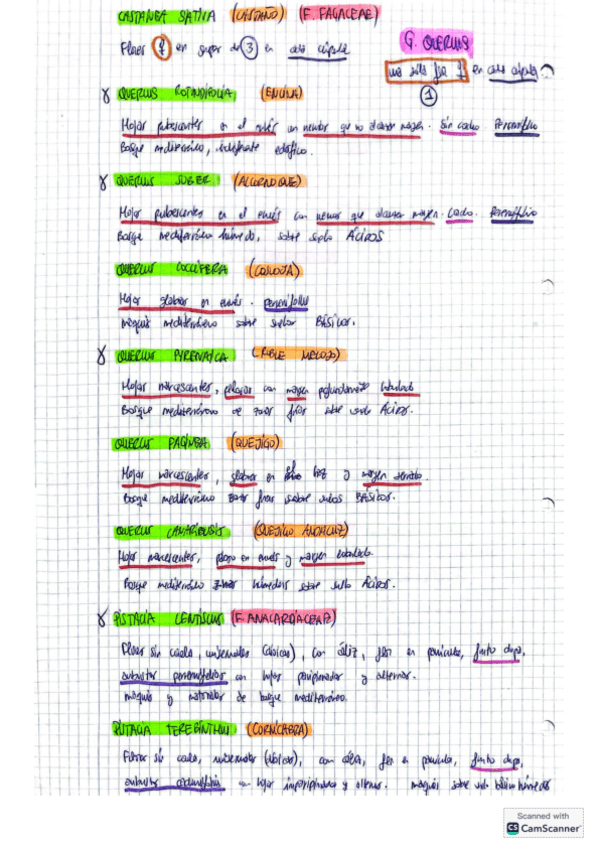 CASTANEA SATIVA (CASTAÑO) (F. FAGACEAE)
Flores ♀ en grupos de 3 en cada cúpula
G. QUERCUS
una sola flor ♀ en cada cúpula
1
QUERCUS ROTUNDIFOLIA (ENCINA)
Hojas pubescentes en el envés con nervios que no alcanzan margen. Sin corcho. Perennifolio
Bosque mediterráneo, indiferente edáfico.
QUERCUS SUBER (ALCORNOQUE)
Hojas pubescentes en el envés con nervios que alcanzan margen. Corcho. Perennifolio
Bosque mediterráneo húmedo, sobre suelo ÁCIDOS
QUERCUS COCCIFERA (COSCOJA)
Hojas glabras en envés. perennifolio
maquis mediterráneo sobre suelos BÁSICOS.
QUERCUS PYRENAICA (ROBLE MELOJO)
Hojas marcescentes, pelosas con margen profundamente lobulado
Bosque mediterráneo de zonas frías sobre suelo Ácidos.
QUERCUS FAGINEA (QUEJIGO)
Hojas marcescentes, glabras en haz y margen serrado.
Bosque mediterráneo zonas frías sobre suelos BÁSICOS.
QUERCUS CANARIENSIS (QUEJIGO ANDALUZ)
Hojas marcescentes, en envés y margen lobulado
Bosque mediterráneo húmedos sobre suelo Ácidos.
PISTACIA LENTISCUS (F. ANACARDIACEAE)
Flores sin corola, unisexuales (dioicas), con cáliz, flor en panícula, fruto drupa,
arbustos perennifolios con hojas paripinnadas y alternas.
maquis y matorrales de bosque mediterráneo.
PISTACIA TEREBINTHUS (CORNICABRA)
Flores sin corola, unisexuales (dioicas), con cáliz, flor en panícula, fruto drupa,
arbustos caducifolios con hojas imparipinnadas y alternas. maquis sobre suelo básico húmedos
Scanned with
CS CamScanner